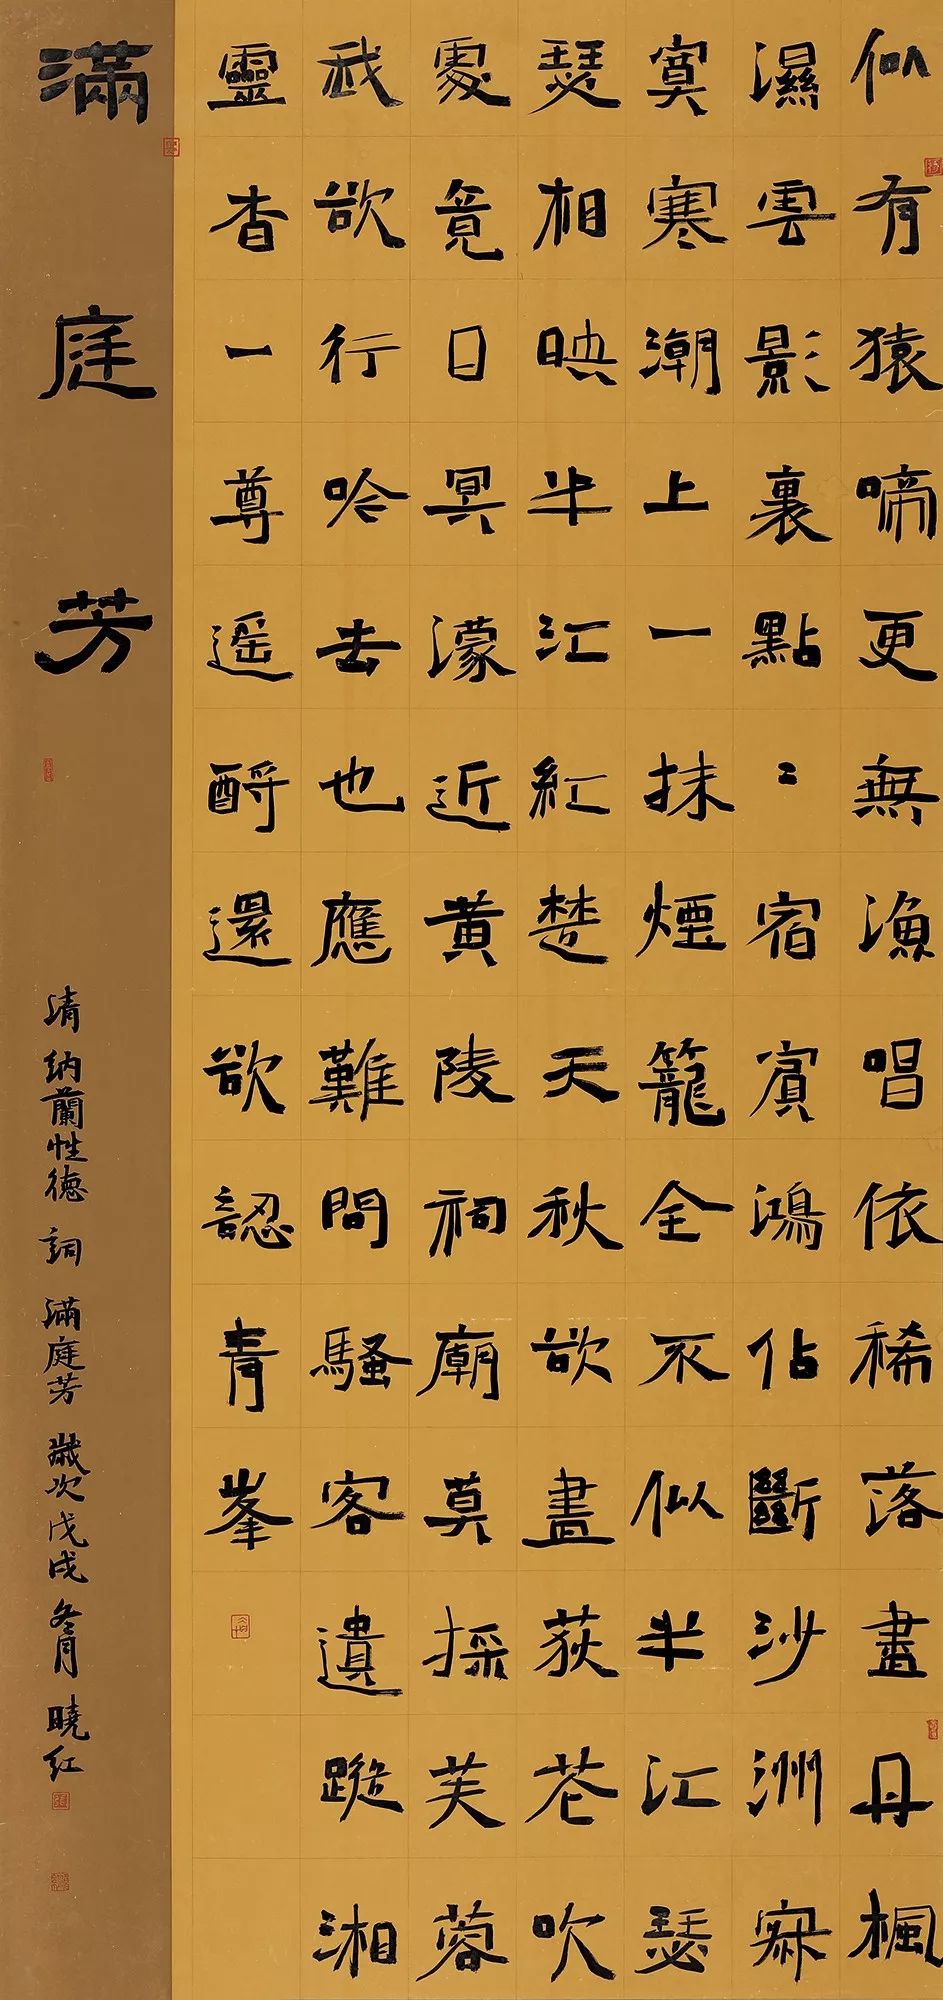 似有猿啼更無漁唱依稀落盡丹楓
濕雲影裏點〻宿賓鴻佔斷沙洲寂
寞寒潮上一抹煙籠全不似半江瑟
瑟相映半江紅楚天秋欲盡荻花吹
處竟日冥濛近黃陵祠廟莫採芙蓉
我欲行吟去也應難問騷客遺蹤湘
靈杳一尊遥酹還欲認青峯
滿庭芳
清納蘭性德詞滿庭芳歲次戊戌冬月曉紅